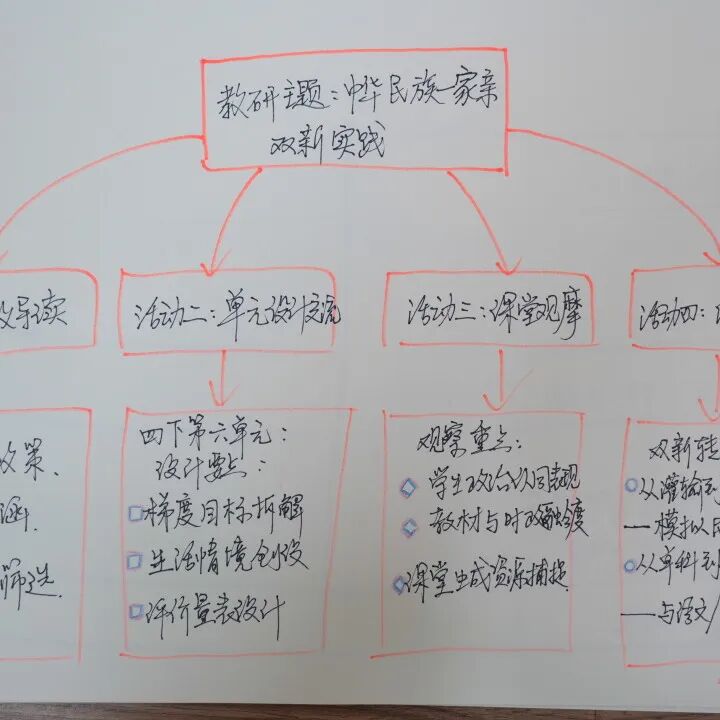 教研主题：中华民族一家亲
双新实践
导读
活动二：单元设计交流
活动三：课堂观摩
活动四：
政策、
涵
筛选
四下第六单元：
设计要点：
梯度目标拆解
生活情境创设
评价量表设计
观察重点：
学生政治认同表现
教材与时政融合度
课堂生成资源捕捉
双新转
从灌输到
—模拟
从单科到
—与语文/